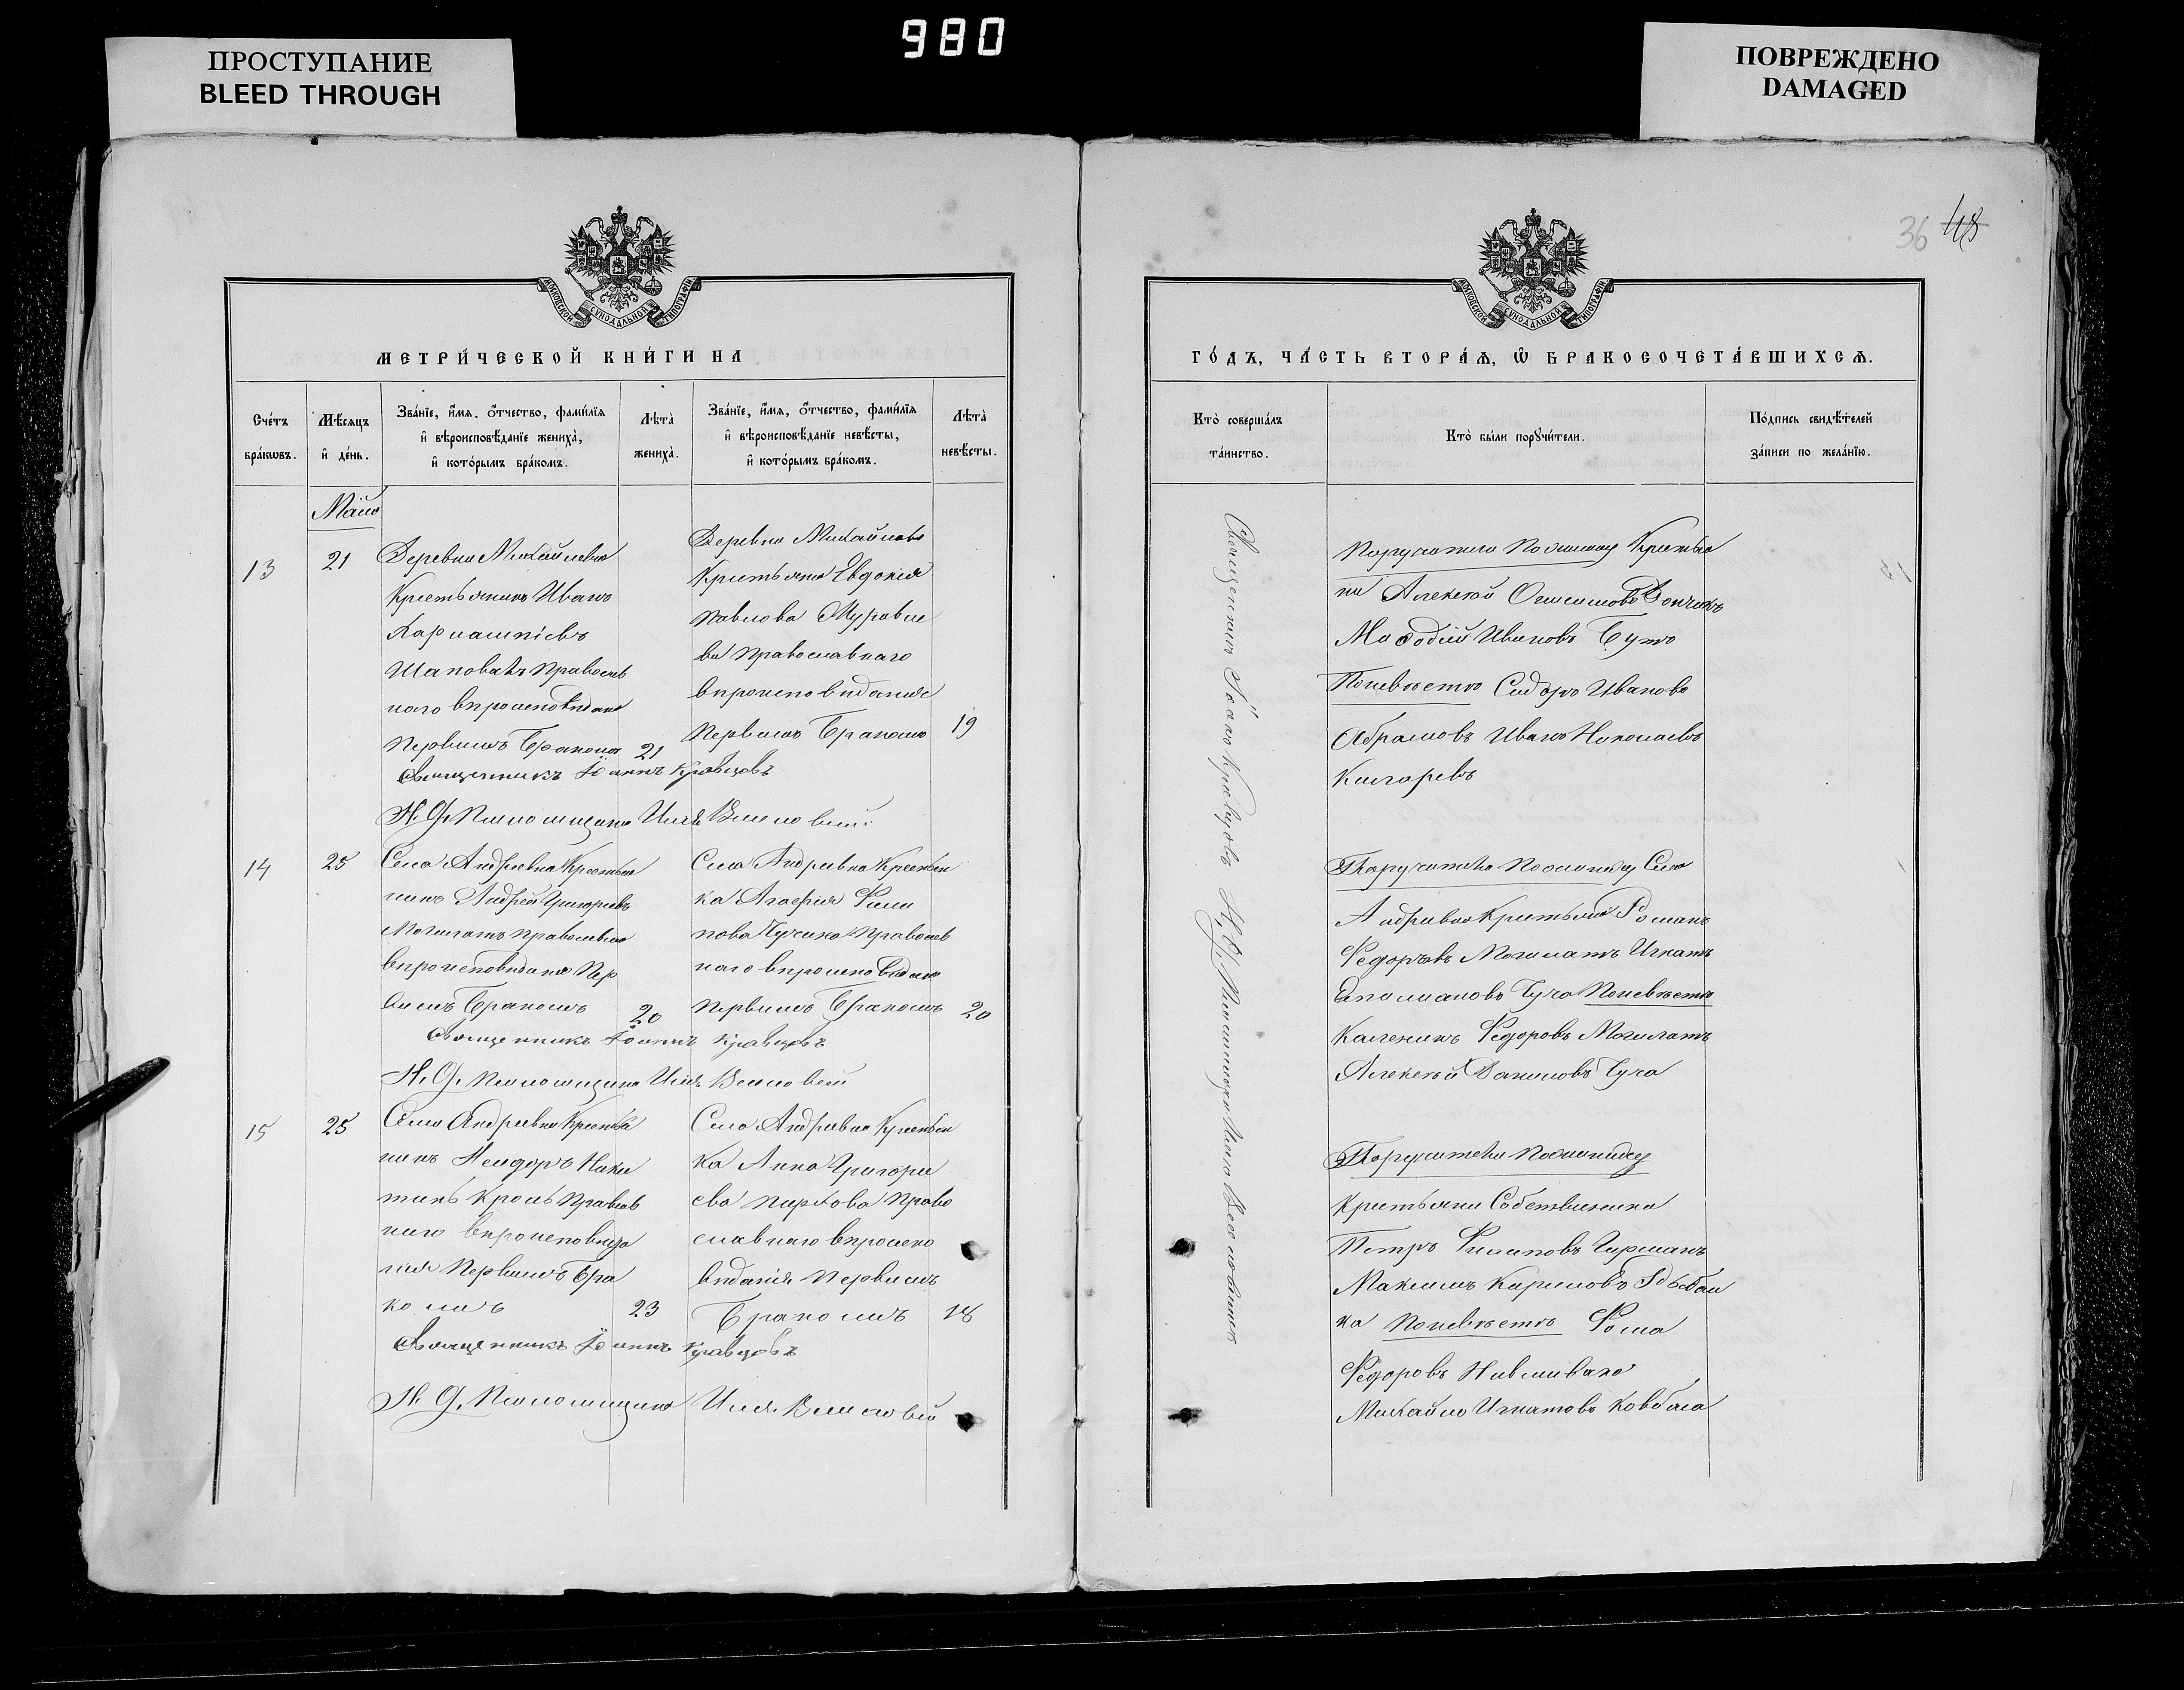 980
ПРОСТУПАНИЕ
BLEED THROUGH
ПОВРЕЖДЕНО
DAMAGED
36 48
МОСКОВСКОЙ СѴНОДАЛЬНОЙ ТИПОГРАФІИ
МЕТРИ́ЧЕСКОЙ КНИ́ГИ НА
Сче́тъ бра́кѡвъ.
Мѣ́сяцъ и҆ де́нь.
Зва́нїе, и҆́мя, ѻ҆́тчество, фами́лїя
и҆ вѣроисповѣ́данїе жениха̀,
и҆ кото́рымъ бра́комъ.
Лѣта̀ жениха̀.
Зва́нїе, и҆́мя, ѻ҆́тчество, фами́лїя
и҆ вѣроисповѣ́данїе невѣ́сты,
и҆ кото́рымъ бра́комъ.
Лѣта̀ невѣ́сты.
Маій
13
21
Деревни Михайловки
Крестьянинъ Иванъ
Шаповалъ Православ
наго вѣроисповѣдания
Первымъ Бракомъ
21
Деревни Михайловки
Крестьянка Евдокия
Павлова Муравле
ва Православнаго
вѣроисповѣдания
Первымъ Бракомъ
19
Священникъ Іоаннъ Кравцовъ
И. Д. Псаломщика Илья
14
25
Села Андреевки Крестья
нинъ Андрей Григорьевъ
Могилатъ Православнаго
вѣроисповѣдания Пер
вымъ Бракомъ
20
Села Андреевки Крестьян
ка Агафия Фили
пова Православ
наго вѣроисповѣдания
Первымъ Бракомъ
20
Священникъ Іоаннъ Кравцовъ
И. Д. Псаломщика Илья
15
25
Села Андреевки Крестья
нинъ Ники
тинъ Кроль Православ
наго вѣроисповѣда
ния Первымъ Бра
комъ
23
Села Андреевки Крестьян
ка Анна Григорье
ева Пархова Право
славнаго вѣроиспо
вѣдания Первымъ
Бракомъ
18
Священникъ Іоаннъ Кравцовъ
И. Д. Псаломщика Илья
МОСКОВСКОЙ СѴНОДАЛЬНОЙ ТИПОГРАФІИ
ГО́ДЪ, ЧА́СТЬ ВТОРА́Я, Ѡ҆ БРАКОСОЧЕТА́ВШИХСЯ.
Кто̀ соверша́лъ
та́инство.
Кто̀ бы́ли порꙋчи́тели.
По́дпись свидѣ́телей
за́писи по жела́нїю.
Священникъ Іоаннъ Кравцовъ И. Д. Псаломщика Илья
Поручители По жениху Крестья
не Алексей
Мефодій Ивановъ
По невѣсте Сидоръ Ивановъ
Абрамовъ Иванъ Николаевъ
Поручители По жениху Села
Андреевки Крестьяне Романъ
Федоровъ Могилатъ Игнатъ
По невѣсте
Федоровъ Могилатъ
Алексей Даниловъ
Поручители По жениху
Крестьяне Собственники
Петръ Филиповъ
Максимъ Кариповъ
ка По невѣсте Фома
Федоровъ
Михайло Игнатовъ Ковбаса